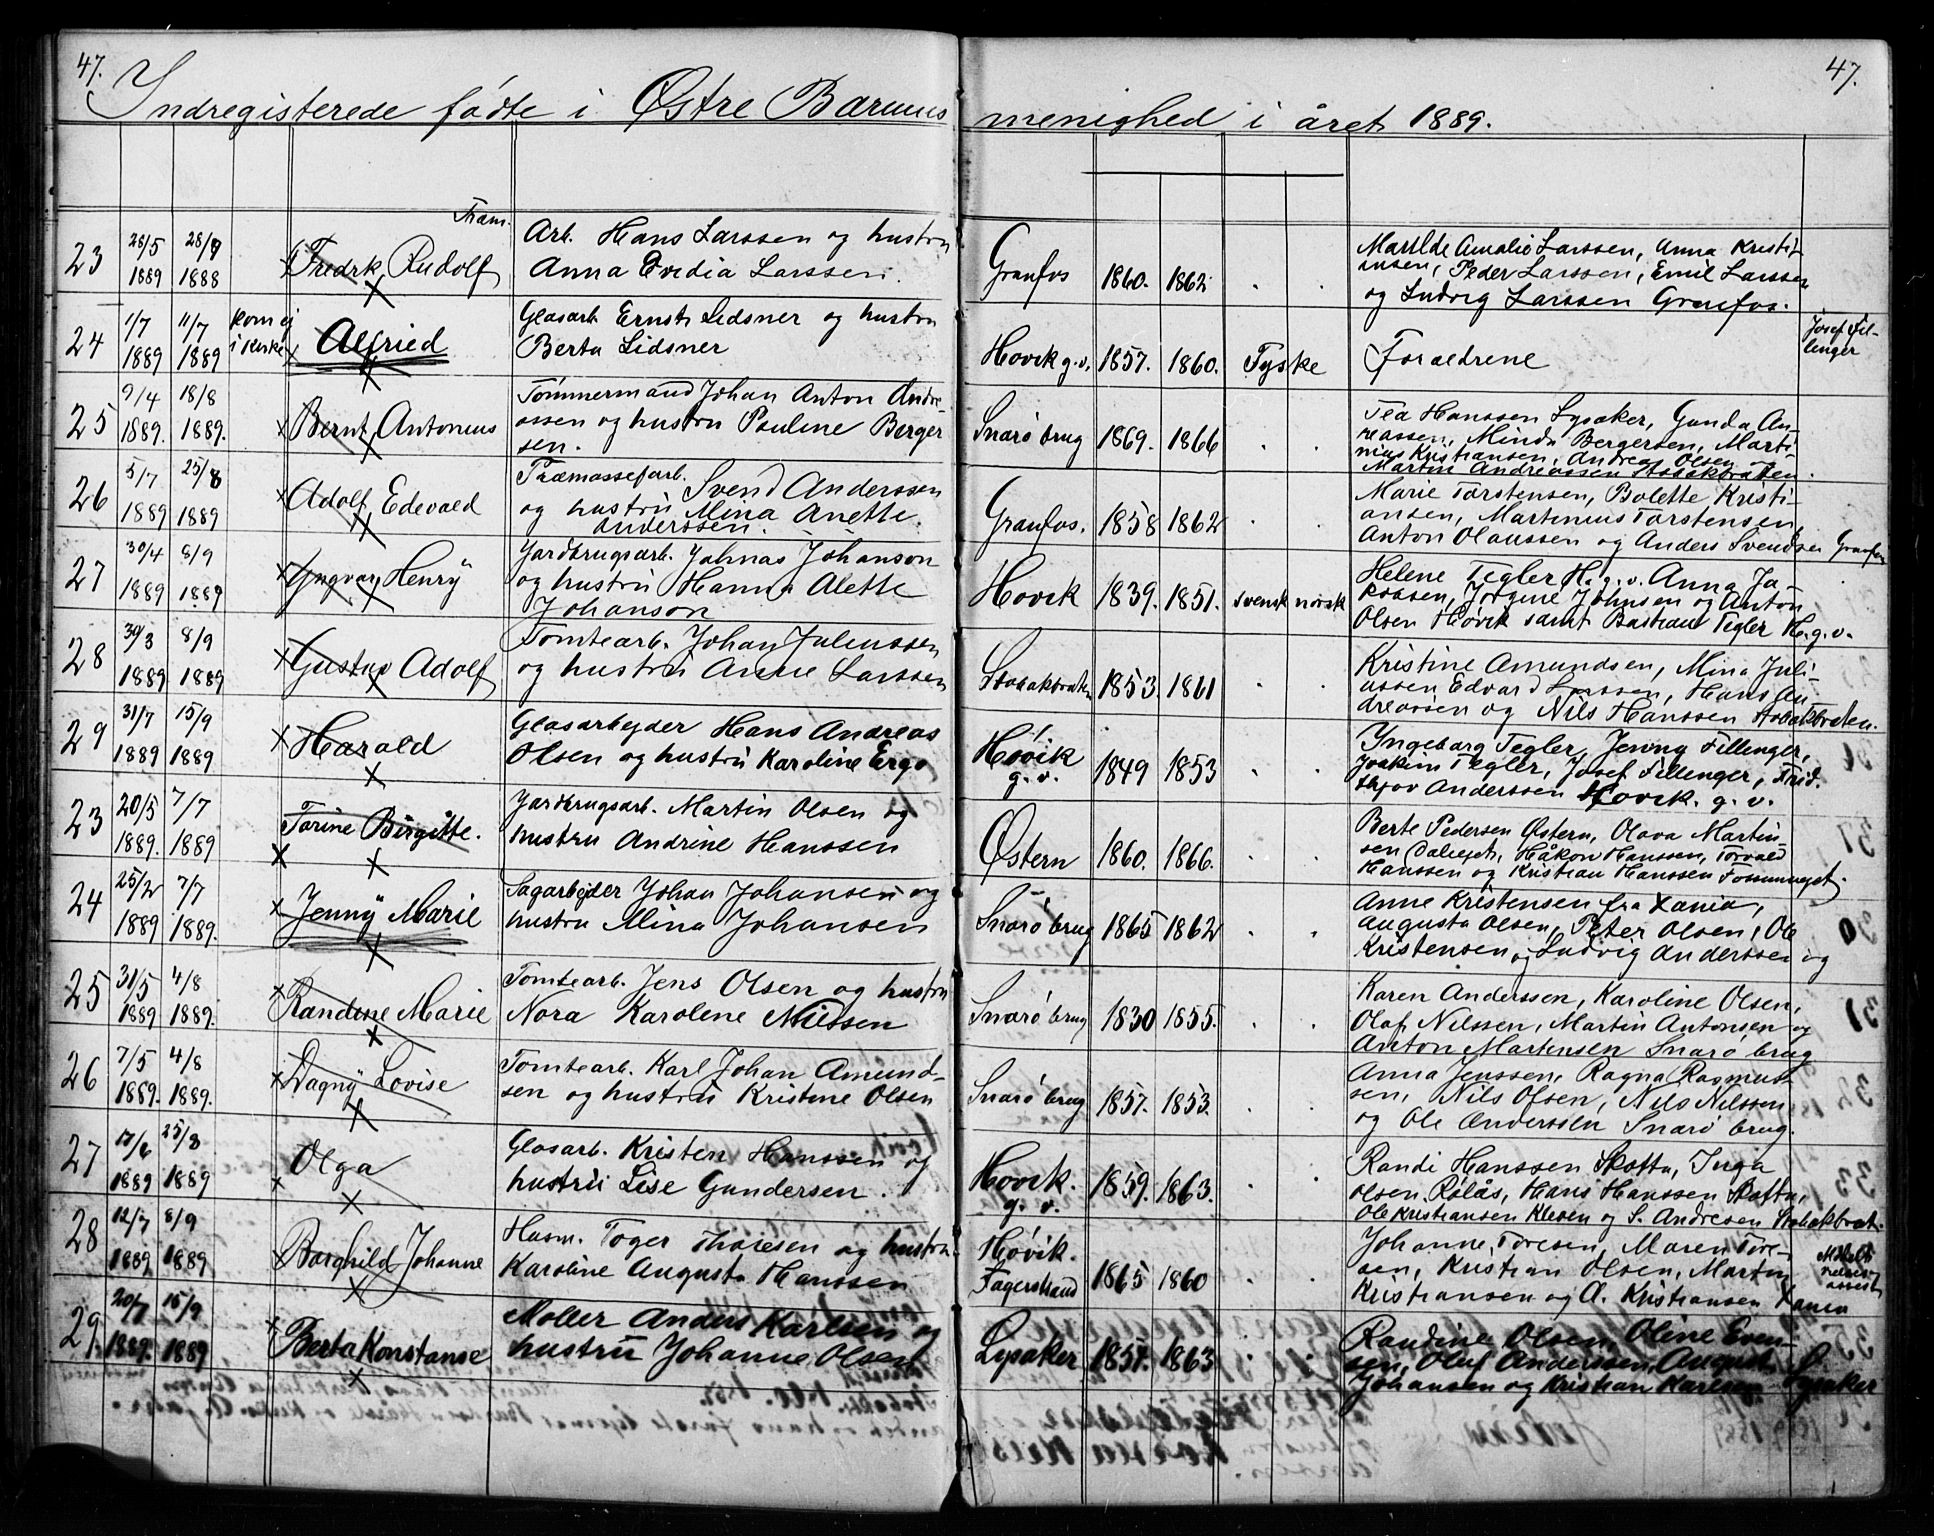 47.
47.
Indregisterede fødte i Østre Bærums menighed i året 1889.
Fram.
23 28/5 1889 28/9 1888 Fredrk Rudolf
Arb. Hans Larssen og hustru
Anna Evedia Larssen.
Granfos 1860. 1862.
Matilde Amalie Larssen, Anna Kristi-
ansen, Peder Larssen, Emil Larssen
og Ludvig Larssen Granfos.
24 1/7 1889 11/7 1889 kom ej i kirke Alfried
Glasarb. Ernst Lidsner og hustru
Berta Lidsner
Hovik g.v. 1857. 1860. Tyske
Foraeldrene
Josef Fil-
lenger
25 9/4 1889. 18/8 1889. Bernt Antonius
Tømmermand Johan Anton Andre-
assen og hustru Pauline Berger
sen.
Snarø brug 1869. 1866
Tea Hanssen Lysaker, Gunda An-
reassen, Minda Bergersen, Marti-
nius Kristiansen, Andreas Olsen
Martin Andreassen Stabækbraten.
26 5/7 1889 25/8 1889 Adolf Edevald
Træmassefarb. Svend Anderssen
og hustru Mina Anette
Anderssen.
Granfos. 1858 1862
Marie Torstensen, Bolette Kristi-
ansen, Martenius Torstensen,
Anton Olaussen og Anders Svendsen Granfos
27 30/4 1889 8/9 1889 Yngvar Henry
Jardbrugsarb. Johnas Johanson
og hustru Hanna Alette
Johanson
Hovik 1839. 1851. svensk norsk
Helene Tegler H.g.v. Anna Ja-
kobsen, Jörgine Johnsen og Anton
Olsen Høvik samt Bastian Tegler H.g.v.
28 30/3 1889 8/9 1889 Gustav Adolf
Tomtearb. Johan Juliussen
og hustru Anne Larssen
Stabækbraten 1853. 1861
Kristine Amundsen, Mina Juli-
assen Edvard Larssen, Hans An-
dreassen og Nils Hanssen Stabækbraten.
29 31/7 1889 15/9 1889 Harald
Glasarbejder Hans Andreas
Olsen og hustru Karoline Ergo
Høvik
g. v. 1849 1853
Yngeborg Tegler, Jenny Fillenger,
Joakim Tegler, Josef Fillenger, Frid-
thjov Anderssen Hovik. g. v.
23 20/5 1889. 7/7 1889 Torine Birgitte.
Jardbrugsarb. Martin Olsen og
hustru Andrine Hanssen
Østern 1860. 1866.
Berte Pedersen Østern, Olava Martin-
sen Dalvejet, Håkon Hanssen, Torvald
Hanssen og Kristian Hanssen Fossumvejet.
24 25/2 1889 7/7 1889. Jenny Marie
Sagarbejder Johan Johansen og
hustru Mina Johansen
Snarø brug 1865 1862
Anne Kristensen fra Xania,
Augusta Olsen, Peter Olsen, Ole
Kristensen og Ludvig Anderssen og
25 31/5 1889 4/8 1889. Randine Marie
Tomtearb. Jens Olsen og hustru
Nora Karolene Nilssen
Snarø brug 1830 1855.
Karen Anderssen, Karoline Olsen,
Olaf Nilssen, Martin Antonsen og
Anton Martensen Snarø brug
26 7/5 1889. 4/8 1889. Dagny Lovise
Tomtearb. Karl Johan Amund-
sen og hustru Kristine Olsen
Snarø brug 1857. 1853.
Anna Jenssen, Ragna Rasmus-
sen, Nils Olsen, Nils Nilssen
og Ole Anderssen Snarø brug.
27 17/6 1889 25/8 1889 Olga
Glasarb. Kristen Hanssen og
hustru Lise Gundersen.
Hovik.
g. v. 1859. 1863.
Randi Hanssen Skotta, Inga
Olsen, Rølås, Hans Hanssen Skotta,
Ole Kristiansen Kleven og S. Andresen Stabækbrat.
28 12/7 1889 8/9 1889 Borghild Johanne
Husm. Toger Thoresen og hustru
Karoline Augusta Hanssen
Høvik.
Fagerstrand 1865 1860
Johanne Toresen, Maren Tore-
sen, Kristian Olsen, Martin
Kristiansen og A. Kristiansen Xania
29. 20/7 1889. 15/9 1889 Berta Konstanse
Møller Anders Karlsen og
hustru Johanne Olsen
Lysaker 1857. 1863
Randine Olsen, Oline Even-
sen, Oluf Anderssen, August
Johansen og Kristian Karlsen Lysaker